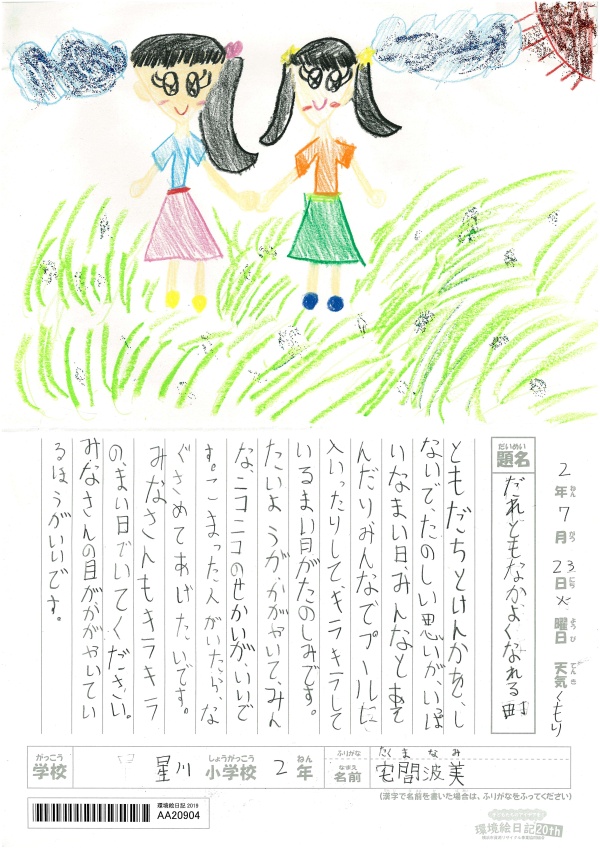 2年7月23日火曜日天気くもり
ねん がつ にち よう び てん き
だいめい
題名 だれどもなかよくなれる町
ともだちとけんかをし
ないで、たのしい思いが、いっぱ
いなまい日、みんなとあそ
んだりみんなでプールに
入いったりして、キラキラして
いるまい日がたのしみです。
たいようが、かがやいて、みん
な、ニコニコのせかいがいいで
す。こまった人がいたら、な
ぐさめてあげたいです。
みなさんもキラキラ
の、まい日でいてください。
みなさんの目ががかがやいてい
るほうがいいです。
がっこう しょうがっこう ねん ふりがな たくま なみ
学校 星川 小学校 2 年 なまえ 名前 宅間波美
(漢字で名前を書いた場合は、ふりがなをふってください)
環境絵日記2019
AA20904
環境絵日記20th